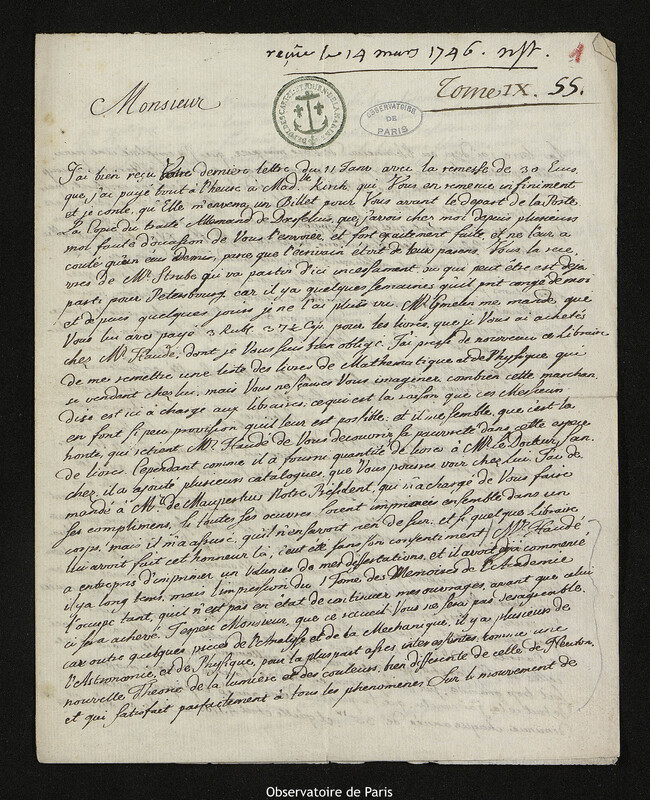 reçûe le 14 mars 1746. nst. 1
Tome IX. 55.
DEPOT DES CARTES PLANS ET JOURN. DE LA MARINE
OBSERVATOIRE DE PARIS
Monsieur
J'ai bien reçu Votre derniere lettre du 11 Janv. avec la remesse de 30 Ecus
que j'ai payé tout à l'heure à Madlle Kirch, qui Vous en remercie infiniment
et je conte, qu'Elle m'envera un Billet pour Vous avant le depart de la Poste.
La Copie du traité Allemand de Doxfelius, que j'avois chez moi depuis plusieurs
moi faute d'occasion de Vous l'envoier, et fort exactement faite, et ne leur a
couté qu'un ecu Demi, parce que l'ecrivain étoit de leur parens. Vous la rece-
vres de Mr. Strube qui va partir d'ici incessament, ou qui peut être est deja
parti pour Petersbourg, car il y a quelques semaines qu'il prit congé de moi
et depuis quelques jours je ne l'ai plus vu. Mr. Gmelin me mande, que
Vous lui aves payé 3 Rubl. 37½ Cop. pour les livres, que je Vous ai achetés
chez Mr. Haude, dont je Vous suis bien obligé. J'ai pressé de nouveau ce Libraire
de me remettre une liste des livres de Mathematique et de Physique qui
se vendent chez lui, mais Vous ne sauries Vous imaginer, combien cette marchan-
dise est ici à charge aux libraires, ce qui est la raison que ces Messieurs
en font si peu provision qu'il leur est possible: et il me semble, que c'est la
honte, qui retient Mr. Haude de Vous decouvrir sa pauvreté dans cette espece
de livres. Cependant comme il a fourni quantité de livres à Mr. le Docteur San-
chez, il a ajouté plusieurs catalogues, que Vous pourres voir chez lui. J'ai de-
mandé à Mr. de Maupertuis Notre President, qui m'a chargé de Vous faire
ses complimens, si toutes ses oeuvres soient imprimées ensemble dans un
corps, mais il m'a assuré, qu'il n'en savoit rien de sur, et si quelque Libraire
lui avoit fait cet honneur là, c'eut eté sans son consentement. Mr. Haude
a entrepris d'imprimer un Volumen de mes dissertations, et il avoit deja commencé
il y a long tems, mais l'impression du 1 Tome des Memoires de l'Academie
l'occupe tant, qu'il n'est pas en état de continuer mes ouvrages, avant que celui
ci sera achevé. J'espere Monsieur, que ce recueil Vous ne sera pas desagreable,
car outre quelques pieces de l'Analyse et de la Mechanique, il y a plusieurs de
l'Astronomie, et de Physique, pour la plus part asses interessantes, comme une
nouvelle Theorie de la lumiere et des couleurs, bien differente de celle de Neuton,
et qui satisfait parfaitement à tous les phenomenes. Sur le mouvement de
Observatoire de Paris